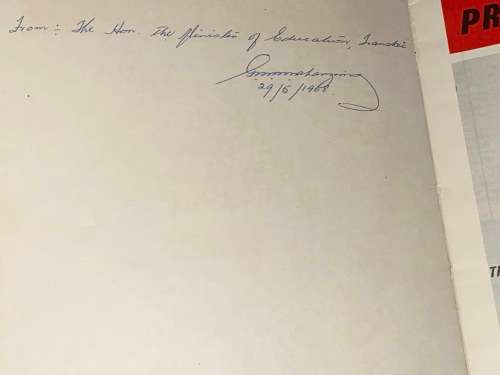 From: The Hon. the Minister of Education, Transkei.
29/5/1968
PR